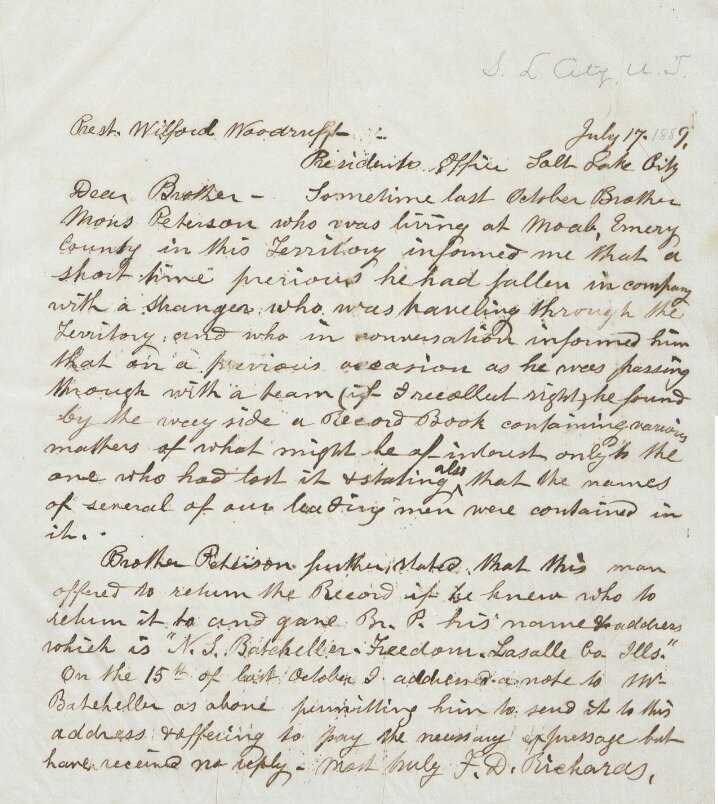 S. L. City, U. T.
Prest. Wilford Woodruff - July 17. 1889.
Presidents Office Salt Lake City
Dear Brother - Sometime last October Brother
Mons Peterson who was living at Moab, Emery
County in this Territory informed me that a
short time previous he had fallen in company
with a stranger who was traveling through the
Territory, and who in conversation informed him
that on a previous occasion as he was passing
through with a team (if I recollect right) he found
by the way side a Record Book containing various
matters of what might be of interest only to the
one who had lost it & stating also that the names
of several of our leading men were contained in
it.
Brother Peterson further stated that this man
offered to return the Record if he knew who to
return it to and gave Br. P. his name & address
which is "N. S. Batcheller. Freedom. Lasalle Co Ills."
On the 15th of last October I addressed a note to Mr
Batcheller as above permitting him to send it to this
address & offering to pay the necessary expressage but
have received no reply - Most truly F. D. Richards.